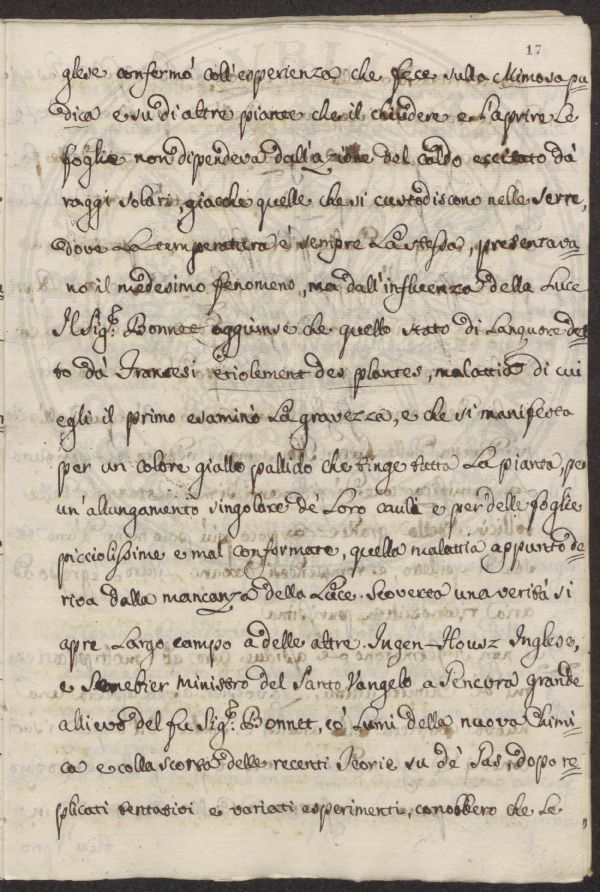 17
glese confermò coll'esperienza che fece sulla Mimosa pu
dica e su di altre piante che il chiudere e l'aprire Le
foglie non dipendeva dall'azione del caldo eccitato dà
raggi solari, giacche quelle che si custodiscono nelle serre,
dove La temperatura è sempre La stessa, presentava=
no il medesimo fenomeno, ma dall'influenza della Luce
Il Sig.r Bonnet aggiunse che quello stato di Languore det=
to dà Francesi ètiolement des plantes, malattia di cui
egli il primo esaminò La gravezza, e che si manifesta
per un colore giallo pallido che tinge tutta La pianta, per
un'allungamento singolare de' Loro cauli e per delle foglie
picciolissime e mal conformate, quella malattia appunto de=
riva dalla mancanza della Luce. Scoverta una verità si
apre Largo campo a delle altre. Ingen-Housz Inglese,
e Senebier Ministro del Santo Vangelo a Genevra grande
allievo del fu Sig.r Bonnet, co' Lumi della nuova Chimi=
ca e colla scorta delle recenti Teorie su de' Gas, dopo re=
plicati tentativi e variati esperimenti, conobbero che Le